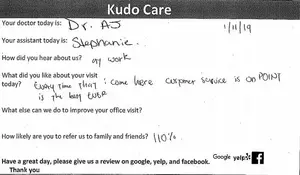 Kudo Care
Your doctor today is: Dr. AJ 1/11/19
Your assistant today is: Stephanie.
How did you hear about us? my work
What did you like about your visit
today? Every time that I come here customer service is on POINT
is the best ever
What else can we do to improve your office visit?
How likely are you to refer us to family and friends? 110%
Have a great day, please give us a review on google, yelp, and facebook. Google yelp f
Thank you